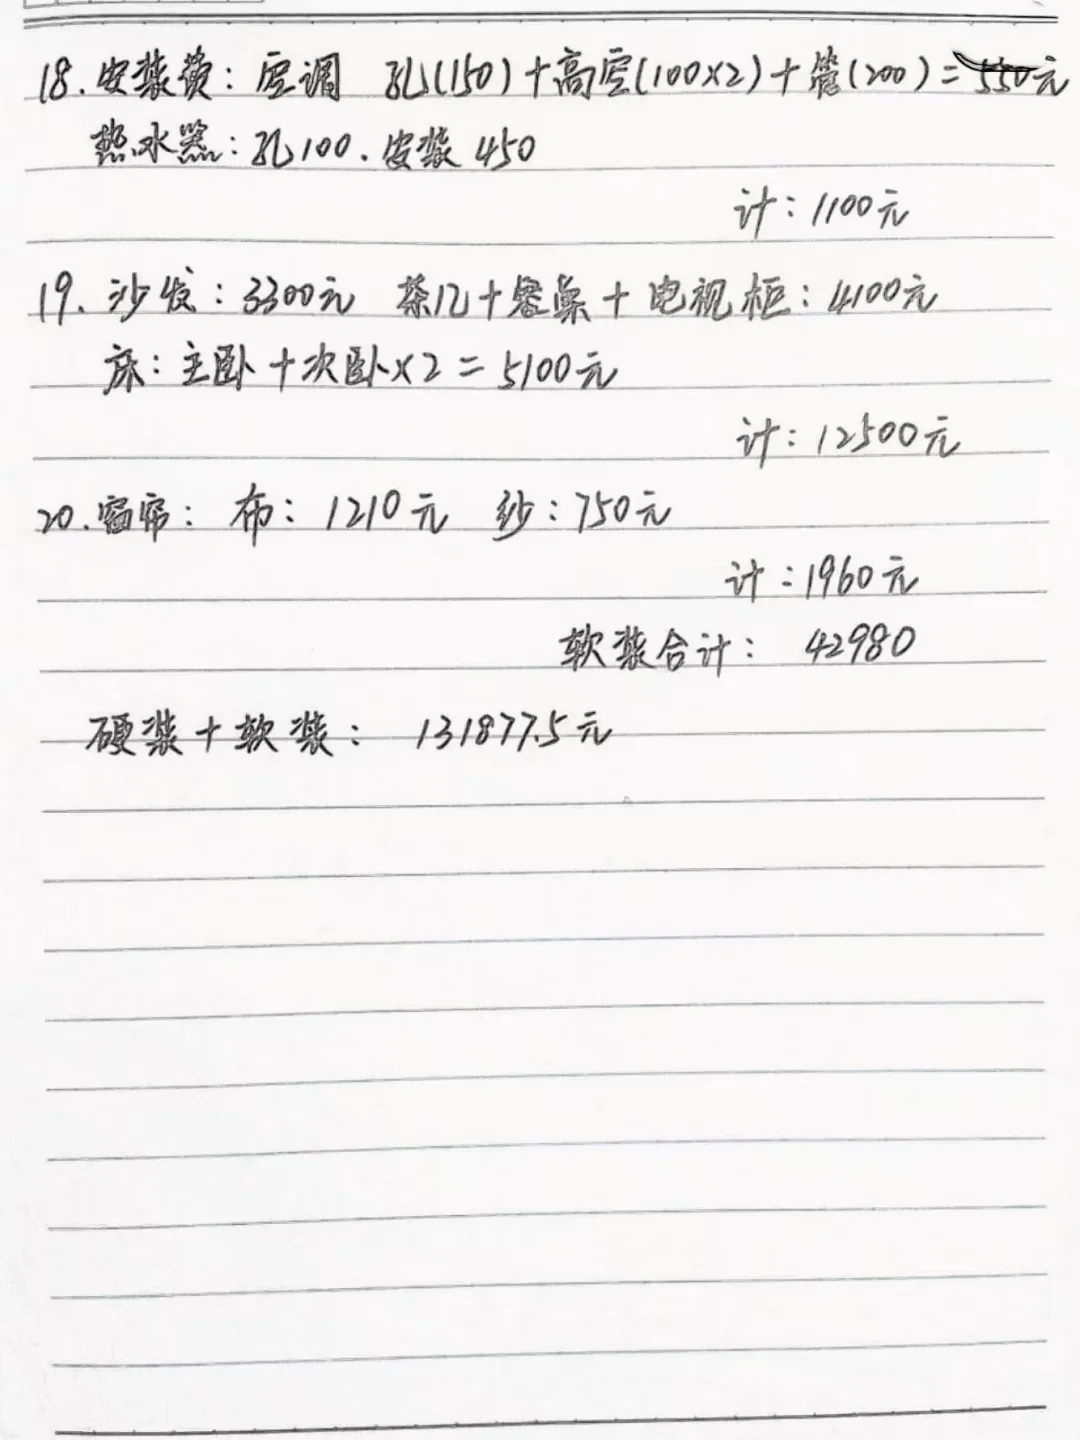 18.安装费：空调 孔(150)+高空(100×2)+管(200)=550元
热水器：孔100.安装450
计：1100元
19.沙发：3300元 茶几+餐桌+电视柜：4100元
床：主卧+次卧×2=5100元
计：12500元
20.窗帘：布：1210元 纱：750元
计：1960元
软装合计：42980
硬装+软装：131877.5元